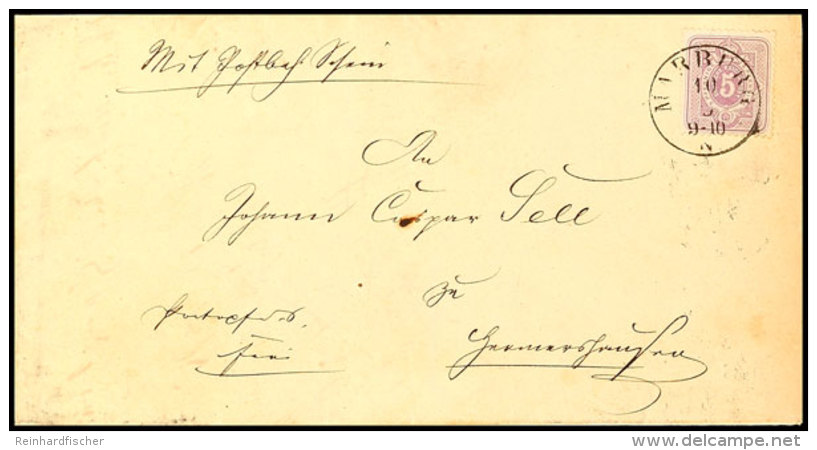 Mit Postbeh. Schein
MARBURG
10
5
9-10
N
An
Johann Caspar Sell
zu
frei
Hermershausen
Reinhardfischer
www.delcampe.net